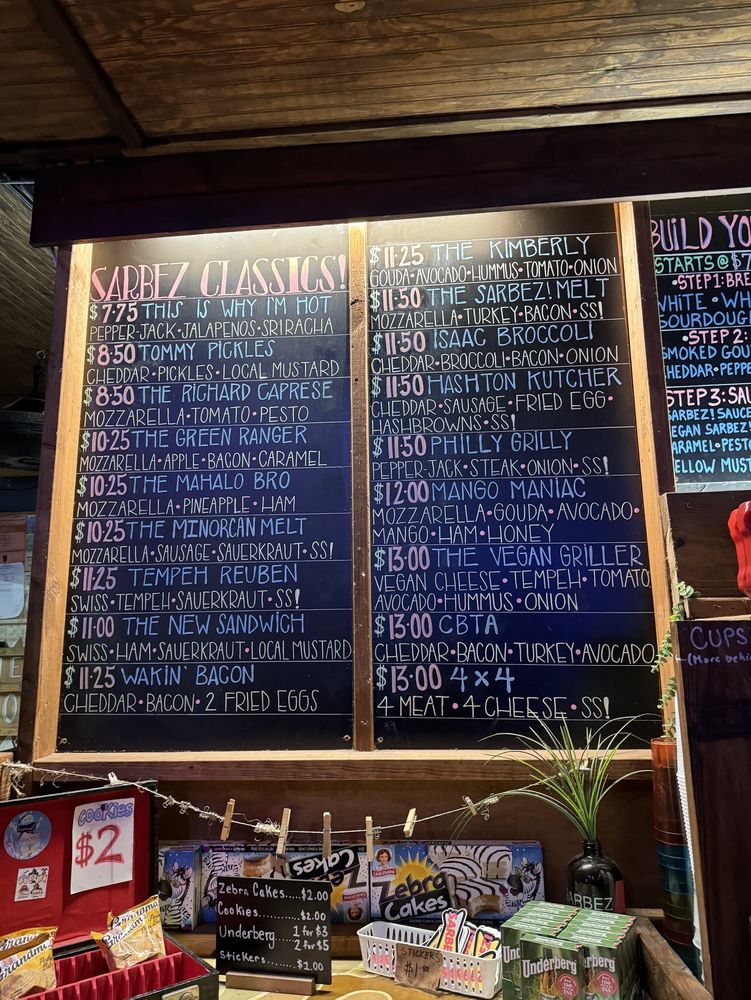 SARBEZ CLASSICS!
$7.75 THIS IS WHY I'M HOT
PEPPER-JACK•JALAPENOS•SRIRACHA
$8.50 TOMMY PICKLES
CHEDDAR•PICKLES•LOCAL MUSTARD
$8.50 THE RICHARD CAPRESE
MOZZARELLA•TOMATO•PESTO
$10.25 THE GREEN RANGER
MOZZARELLA•APPLE•BACON•CARAMEL
$10.25 THE MAHALO BRO
MOZZARELLA•PINEAPPLE•HAM
$10.25 THE MINORCAN MELT
MOZZARELLA•SAUSAGE•SAUERKRAUT•SS!
$11.25 TEMPEH REUBEN
SWISS•TEMPEH•SAUERKRAUT•SS!
$11.00 THE NEW SANDWICH
SWISS•HAM•SAUERKRAUT•LOCAL MUSTARD
$11.25 WAKIN' BACON
CHEDDAR•BACON•2 FRIED EGGS
$11.25 THE KIMBERLY
GOUDA•AVOCADO•HUMMUS•TOMATO•ONION
$11.50 THE SARBEZ! MELT
MOZZARELLA•TURKEY•BACON•SS!
$11.50 ISAAC BROCCOLI
CHEDDAR•BROCCOLI•BACON•ONION
$11.50 HASHTON KUTCHER
CHEDDAR•SAUSAGE•FRIED EGG•
HASHBROWNS•SS!
$11.50 PHILLY GRILLY
PEPPER-JACK•STEAK•ONION•SS!
$12.00 MANGO MANIAC
MOZZARELLA•GOUDA•AVOCADO•
MANGO•HAM•HONEY
$13.00 THE VEGAN GRILLER
VEGAN CHEESE•TEMPEH•TOMATO
AVOCADO•HUMMUS•ONION
$13.00 CBTA
CHEDDAR•BACON•TURKEY•AVOCADO
$13.00 4x4
4 MEAT•4 CHEESE•SS!
BUILD YO
STARTS @ $7
•STEP 1: BRE
WHITE•WH
SOURDOUG
•STEP 2:
SMOKED GOU
CHEDDAR•PEPPE
STEP 3: SAU
SARBEZ! SAUCE
VEGAN SARBEZ!
CARAMEL•PEST
YELLOW MUST
CUPS
(More behi
COOKIES
$2
Grandma's
Grandma's
Zebra Cakes
Zebra Cakes
Zebra Cakes.....$2.00
Cookies..........$2.00
Underberg....1 for $3
2 for $5
Stickers.........$1.00
STICKERS
$1.00
SARBEZ
SARBEZ
Underberg
Underberg